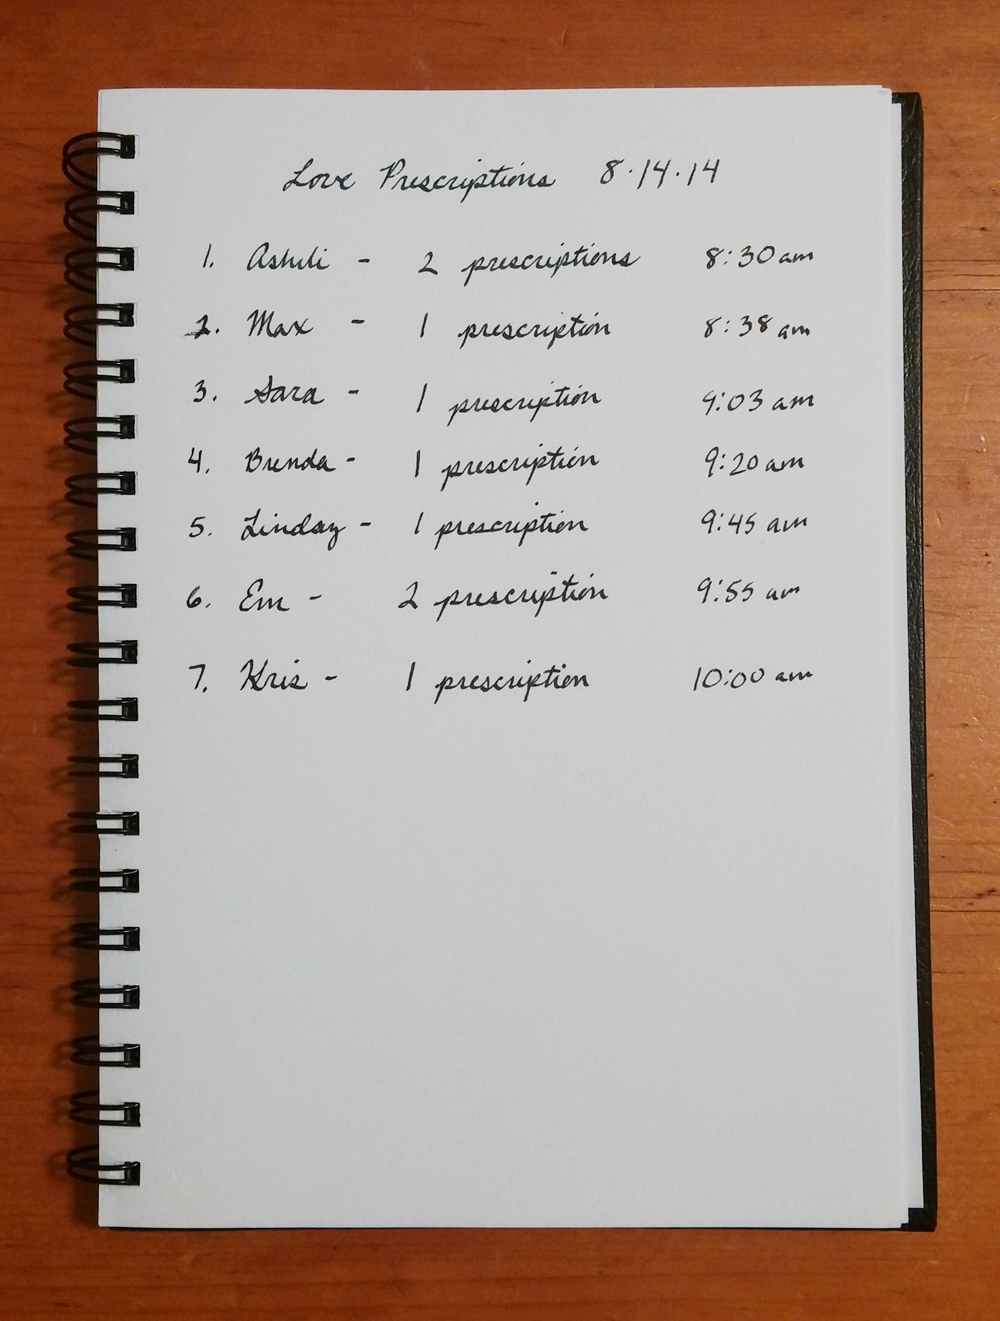 Love Prescriptions 8.14.14
1. Ashli - 2 prescriptions 8:30 am
2. Max - 1 prescription 8:38 am
3. Sara - 1 prescription 9:03 am
4. Brenda - 1 prescription 9:20 am
5. Linday - 1 prescription 9:45 am
6. Em - 2 prescription 9:55 am
7. Kris - 1 prescription 10:00 am